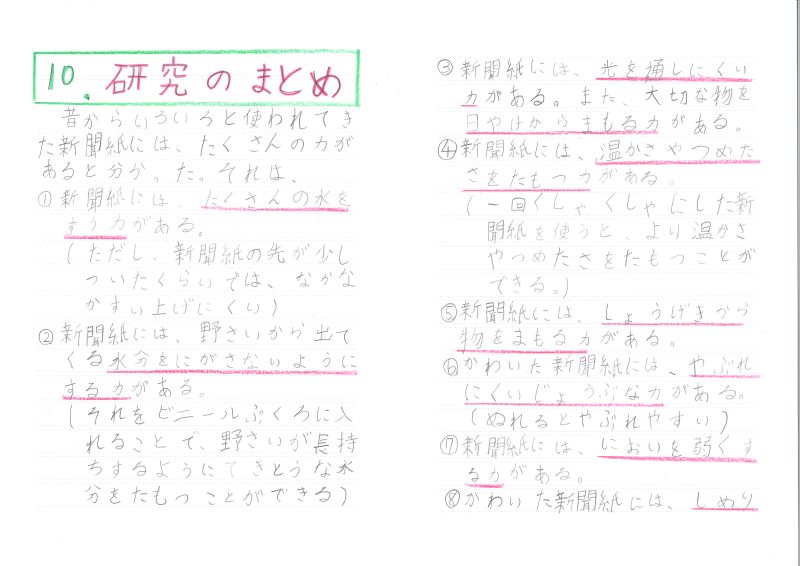 10. 研究のまとめ
昔からいろいろと使われてき
た新聞紙には、たくさんの力が
あると分かった。それは、
①新聞紙には、たくさんの水を
すう力がある。
(ただし、新聞紙の先が少し
ついたくらいでは、なかな
かすい上げにくい)
②新聞紙には、野さいから出て
くる水分をにがさないように
する力がある。
(それをビニールぶくろに入
れることで、野さいが長持
ちするようにてきとうな水
分をたもつことができる)
③新聞紙には、光を通しにくい
力がある。また、大切な物を
日やけからまもる力がある。
④新聞紙には、温かさやつめた
さをたもつ力がある。
(一回くしゃくしゃにした新
聞紙を使うと、より温かさ
やつめたさをたもつことが
できる。)
⑤新聞紙には、しょうげきから
物をまもる力がある。
⑥かわいた新聞紙には、やぶれ
にくいじょうぶな力がある。
(ぬれるとやぶれやすい)
⑦新聞紙には、においを弱くす
る力がある。
⑧かわいた新聞紙には、しめり